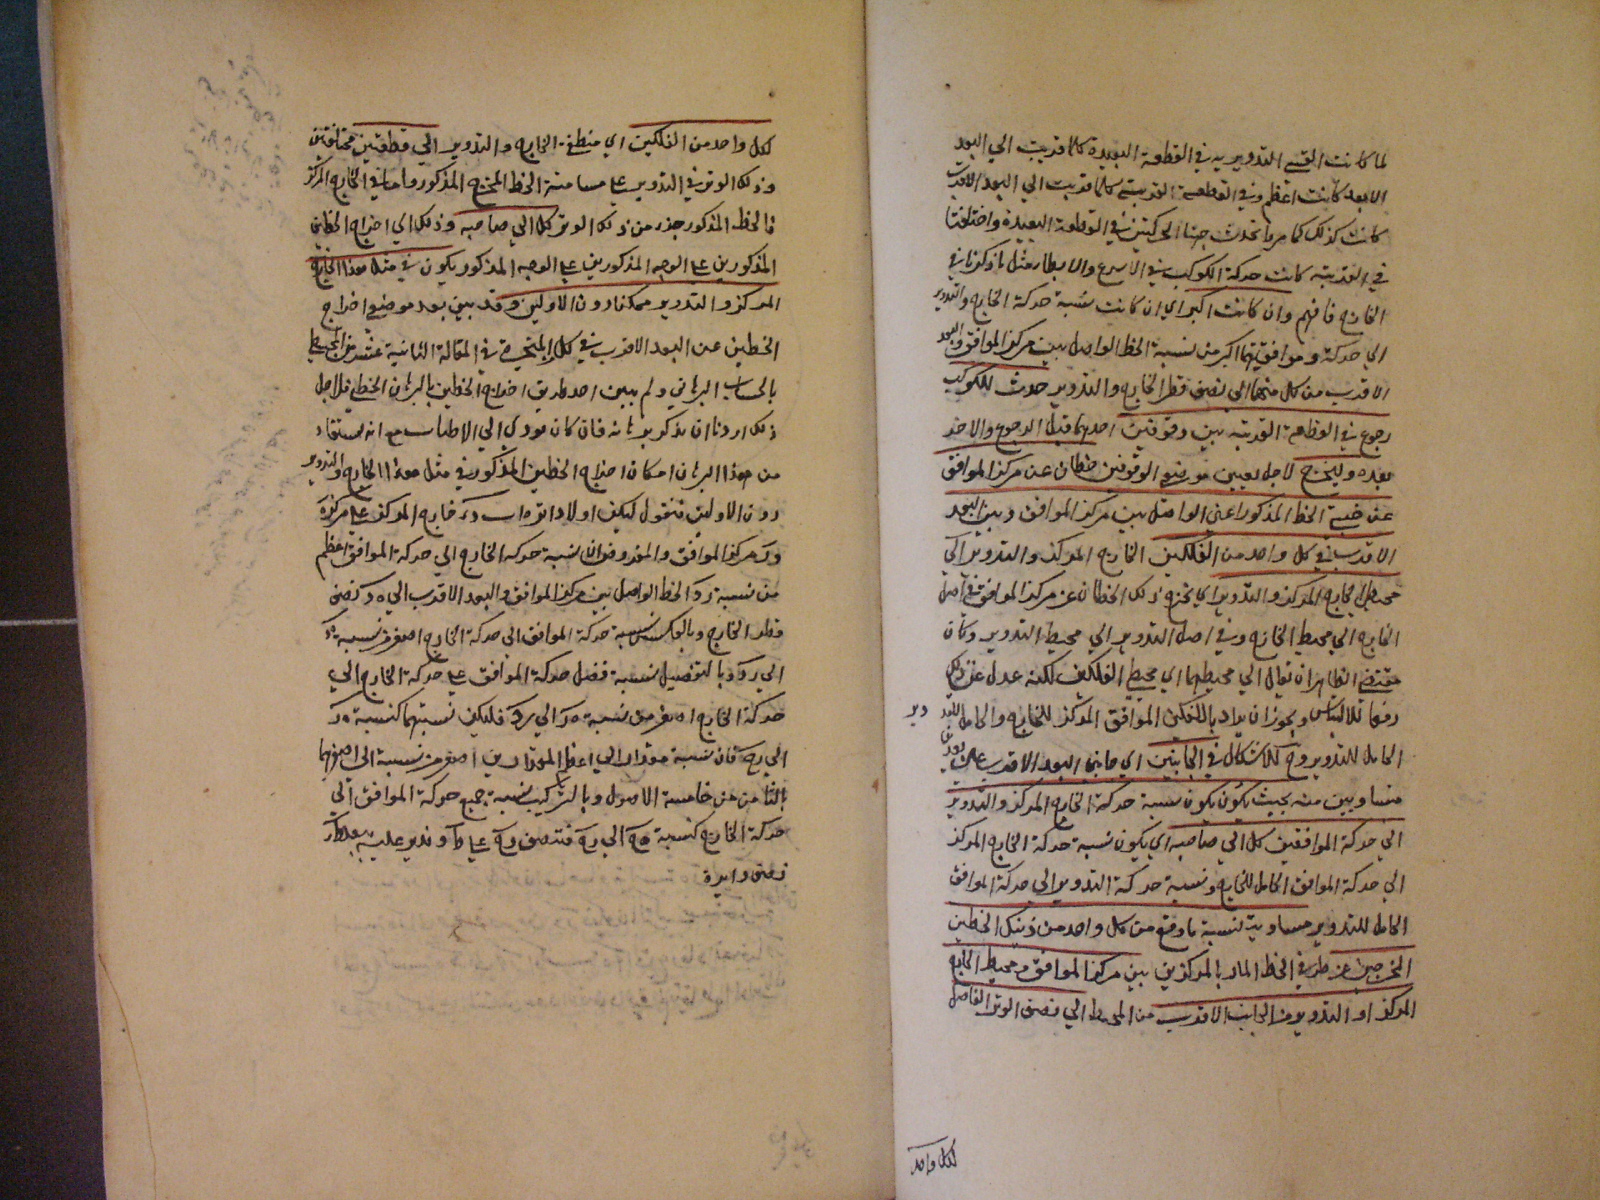 لما كانت القسي التدويرية في القطعة البعيدة كلما قربت الي البعد
الابعد كانت اعظم وفي القطعة القريبة كلما قربت الي البعد الاقرب
كانت كذلك كما مر ما تحدث جهتا الحركتين في القطعة البعيدة واختلفتا
في القريبة كانت حركة الكوكب في الاسرع والابطا بمثل ما ذكرنا في
الخارج فافهم وان كانت اكبر اي ان كانت نسبة حركة الخارج والتدوير
الي حركة موافقيهما اكبر من نسبة الخط الواصل بين مركز الموافق والبعد
الاقرب من كل منهما الي نصف قطر الخارج والتدوير حدث للكوكب
رجوع في القطعة القريبة بين وقوفين احدهما قبل الرجوع والاخر
بعده وليخرج لاجل تعيين موضعي الوقوفين خطان عن مركز الموافق
عن جنبي الخط المذكور اعني الواصل بين مركز الموافق وبين البعد
الاقرب في كل واحد من الفلكين الخارج المركز والتدوير الي
محيطي الخارج المركز والتدوير اي يخرج ذلك الخطان عن مركز الموافق في اصل
الخارج الي محيط الخارج وفي اصل التدوير الي محيط التدوير وكان
مقتضي الظاهر ان يقال الي محيطهما اي محيط الفلكين لكنه عدل عن ذلك
دفعا للالتباس ويجوز ان يراد بالفلكين الموافق المركز للخارج والحامل
الحامل للتدوير فلا اشكال في الجانبين اي جانبي البعد الاقرب علي بعدين
متساويين منه بحيث يكون يكون نسبة حركة الخارج المركز والتدوير
الي حركة الموافقين كل الي صاحبه اي يكون نسبة حركة الخارج المركز
الي حركة الموافق الحامل للخارج ونسبة حركة التدوير الي حركة الموافق
الحامل للتدوير مساوية لنسبة ما وقع من كل واحد من ذينك الخطين
المخرجين عن طرفي الخط المار بالمركزين بين مركز الموافق ومحيط الخارج
المركز او التدوير من الجانب الاقرب من المحيط الي نصف الوتر الفاصل
لكل واحد
لكل واحد من الفلكين اي منطقة الخارج والتدوير الي قطعتين مختلفتين
وذلك الوتر في التدوير علي مسامتة الخط المخرج المذكور واما في الخارج المركز
فالخط المذكور جزء من ذلك الوتر كل الي صاحبه وذلك اي اخراج الخطين
المذكورين علي الوجه المذكورين علي الوجه المذكور يكون في مثل هذا الخارج
المركز والتدوير ممكنا دون الاولين وقد بين بعد موضع اخراج
الخطين عن البعد الاقرب في كل المتحيرة في المقالة الثانية عشر من المجسطي
بالحساب البرهاني ولم يبين احد طريق اخراج الخطين بالبرهان الخطي فلاجل
ذلك اردنا ان نذكر برهانه فان كان مودي الي الاطناب مع انه يستفاد
من هذا البرهان امكان اخراج الخطين المذكور في مثل هذا الخارج والتدوير
دون الاولين فنقول ليكن اولا دائرة خارج المركز علي مركز
مركز الموافق والمفروض ان نسبة حركة الخارج الي حركة الموافق اعظم
من نسبة الخط الواصل بين مركز الموافق والبعد الاقرب الي نصف
قطر الخارج وبالعكس نسبة حركة الموافق الي حركة الخارج اصغر من نسبة
الي وبالتفصيل نسبة فضل حركة الموافق علي حركة الخارج الي
حركة الخارج اصغر من نسبة الي فليكن نسبتهما كنسبة
الي فان نسبة مقدار الي اعظم المقدارين اصغر من نسبته الي اصغرهما
بالثامن من خامسة الاصول وبالتركيب نسبة جميع حركة الموافق الي
حركة الخارج كنسبة الي فننصف علي وندير عليه ببعد
نصف دايرة